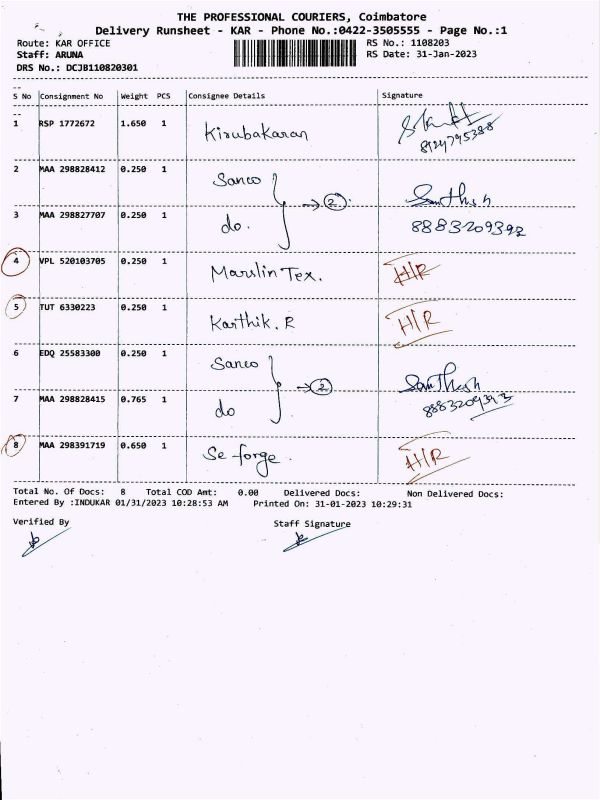 THE PROFESSIONAL COURIERS, Coimbatore
Delivery Runsheet - KAR - Phone No.:0422-3505555 - Page No.:1
Route: KAR OFFICE RS No.: 1108203
Staff: ARUNA RS Date: 31-Jan-2023
DRS No.: DCJB110820301
S No Consignment No Weight PCS Consignee Details Signature
1 RSP 1772672 1.650 1 Kirubakaran
2 MAA 298828412 0.250 1 Sanco
→ 2 Santhosh
3 MAA 298827707 0.250 1 do. 8883209392
4 VPL 520103705 0.250 1 Marslin Tex. H/R
5 TUT 6330223 0.250 1 Karthik. R H/R
6 EDQ 25583300 0.250 1 Sanco
→ 2 Santhosh
7 MAA 298828415 0.765 1 do 8883209393
8 MAA 298391719 0.650 1 Se-forge. H/R
Total No. Of Docs: 8 Total COD Amt: 0.00 Delivered Docs: Non Delivered Docs:
Entered By :INDUKAR 01/31/2023 10:28:53 AM Printed On: 31-01-2023 10:29:31
Verified By Staff Signature